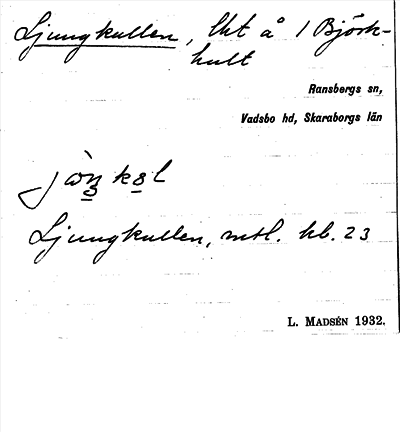 Ljungkullen, lht å 1 Björk-
hult
Ransbergs sn,
Vadsbo hd, Skaraborgs län
Ljungkullen, mtl. hl. 23
L. MADSÉN 1932.